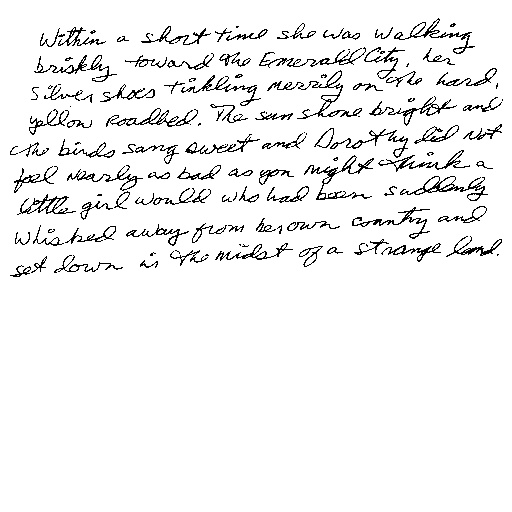 Within a short time she was walking
briskly toward the Emerald City, her
Silver shoes tinkling merrily on the hard,
yellow roadbed. The sun shone bright and
the birds sang sweet and Dorothy did not
feel nearly as bad as you might think a
little girl would who had been suddenly
whisked away from her own country and
set down in the midst of a strange land.